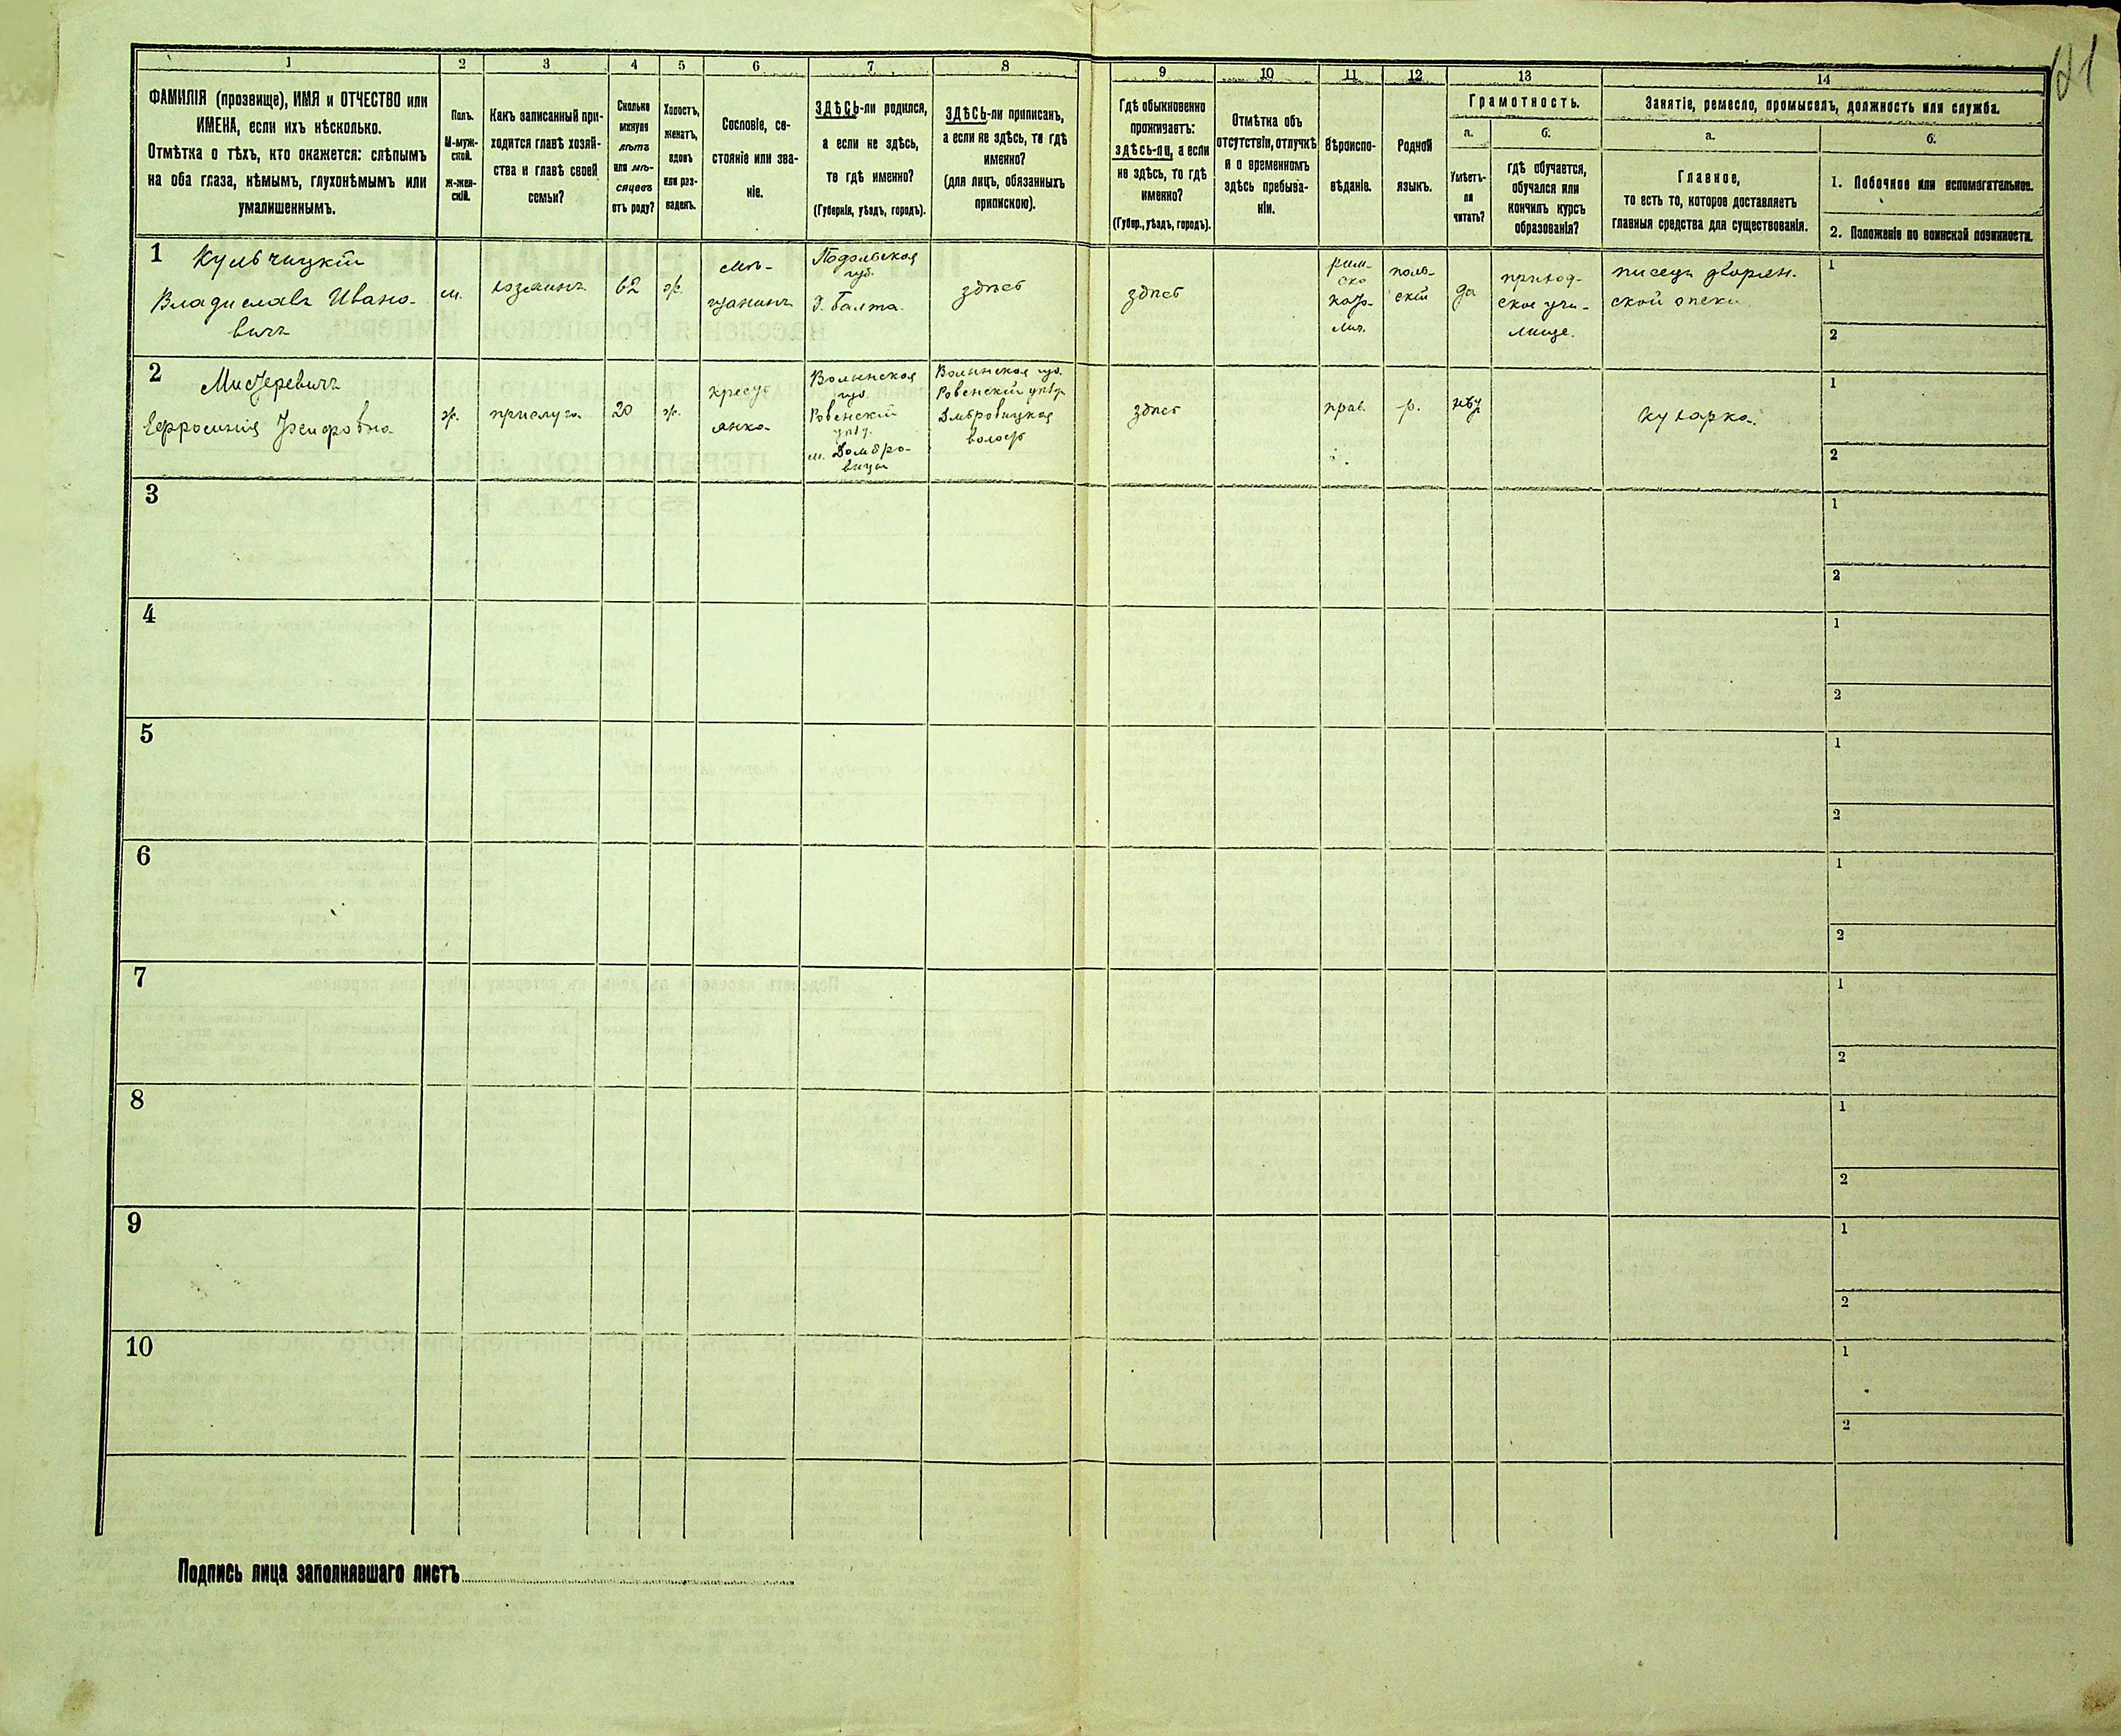 121
1 2 3 4 5 6 7 8 9 10 11 12 13 14
ФАМИЛІЯ (прозвище), ИМЯ и ОТЧЕСТВО или
ИМЕНА, если ихъ нѣсколько.
Отмѣтка о тѣхъ, кто окажется: слѣпымъ
на оба глаза, нѣмымъ, глухонѣмымъ или
умалишеннымъ.
Полъ.
М-муж-
ской.
Ж-жен-
скій.
Какъ записанный при-
ходится главѣ хозяй-
ства и главѣ своей
семьи?
Сколько
минуло
лѣтъ
или мѣ-
сяцевъ
отъ роду?
Холостъ,
женатъ,
вдовъ
или раз-
веденъ.
Сословіе, со-
стояніе или зва-
ніе.
ЗДѢСЬ-ли родился,
а если не здѣсь,
то гдѣ именно?
(Губернія, уѣздъ, городъ).
ЗДѢСЬ-ли приписанъ,
а если не здѣсь, то гдѣ
именно?
(для лицъ, обязанныхъ
припискою).
Гдѣ обыкновенно
проживаетъ:
здѣсь-ли, а если
не здѣсь, то гдѣ
именно?
(Губер., уѣздъ, городъ).
Отмѣтка объ
отсутствіи, отлучкѣ
и о временномъ
здѣсь пребыва-
ніи.
Вѣроиспо-
вѣданіе.
Родной
языкъ.
Грамотность.
а.
Умѣетъ-
ли
читать?
б.
гдѣ обучается,
обучался или
кончилъ курсъ
образованія?
Занятіе, ремесло, промыселъ, должность или служба.
а.
Главное,
то есть то, которое доставляетъ
главныя средства для существованія.
б.
1. Побочное или вспомогательное.
2. Положеніе по воинской повинности.
1 Кульчицкій
Владиславъ Ивано-
вичъ
м.
хозяинъ
62
ж.
мѣ-
щанинъ
Подольская
губ.
г. Балта.
здѣсь
здѣсь
рим-
ско
като-
лич.
поль-
скій
да
приход-
ское учи-
лище.
писецъ дворян-
ской опеки
1
2
2 Мистеревичъ
Ефросинія
ж.
прислуга
20
ж.
крест
янка
Волынская
губ.
Ровенскій
уѣзд.
м. Домбро-
вицы
Волынская губ.
Ровенскій уѣзд
Домбровицкая
волость
здѣсь
прав.
р.
нѣт
кухарка.
1
2
3
1
2
4
1
2
5
1
2
6
1
2
7
1
2
8
1
2
9
1
2
10
1
2
Подпись лица заполнявшаго листъ